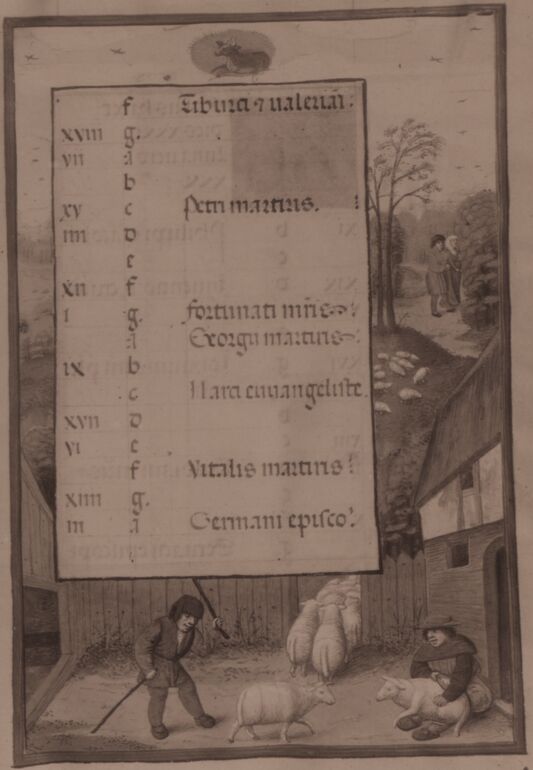 f Tiburci ⁊ valeriai.
xxiii g.
vii a
b
xv c Petri martiris.
iiii d
e
xii f
i g. fortunati mr̃is
a Exorgii martiris
ix b
c Marci euuangeliste.
xvii d
vi e
f Vitalis martiris
xiiii g.
iii a Germani episco.